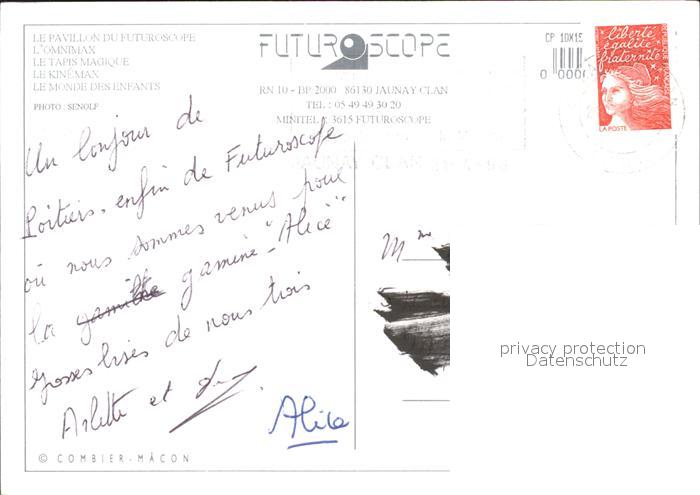 LE PAVILLON DU FUTUROSCOPE
L'OMNIMAX
LE TAPIS MAGIQUE
LE KINÉMAX
LE MONDE DES ENFANTS
PHOTO : SENOLF
FUTUROSCOPE
RN 10 - BP 2000 86130 JAUNAY CLAN
TEL : 05 49 49 30 20
MINITEL : 3615 FUTUROSCOPE
CP 10X15
liberté
égalité
fraternité
RÉPUBLIQUE FRANÇAISE
LA POSTE
JAUNAY CLAN
Un bonjour de
Poitiers. enfin de Futuroscope
où nous sommes venus pour
la gamine - "Alice"
Grosses bises de nous trois
Arlette et
Alice
Mme
privacy protection
Datenschutz
© COMBIER-MÂCON